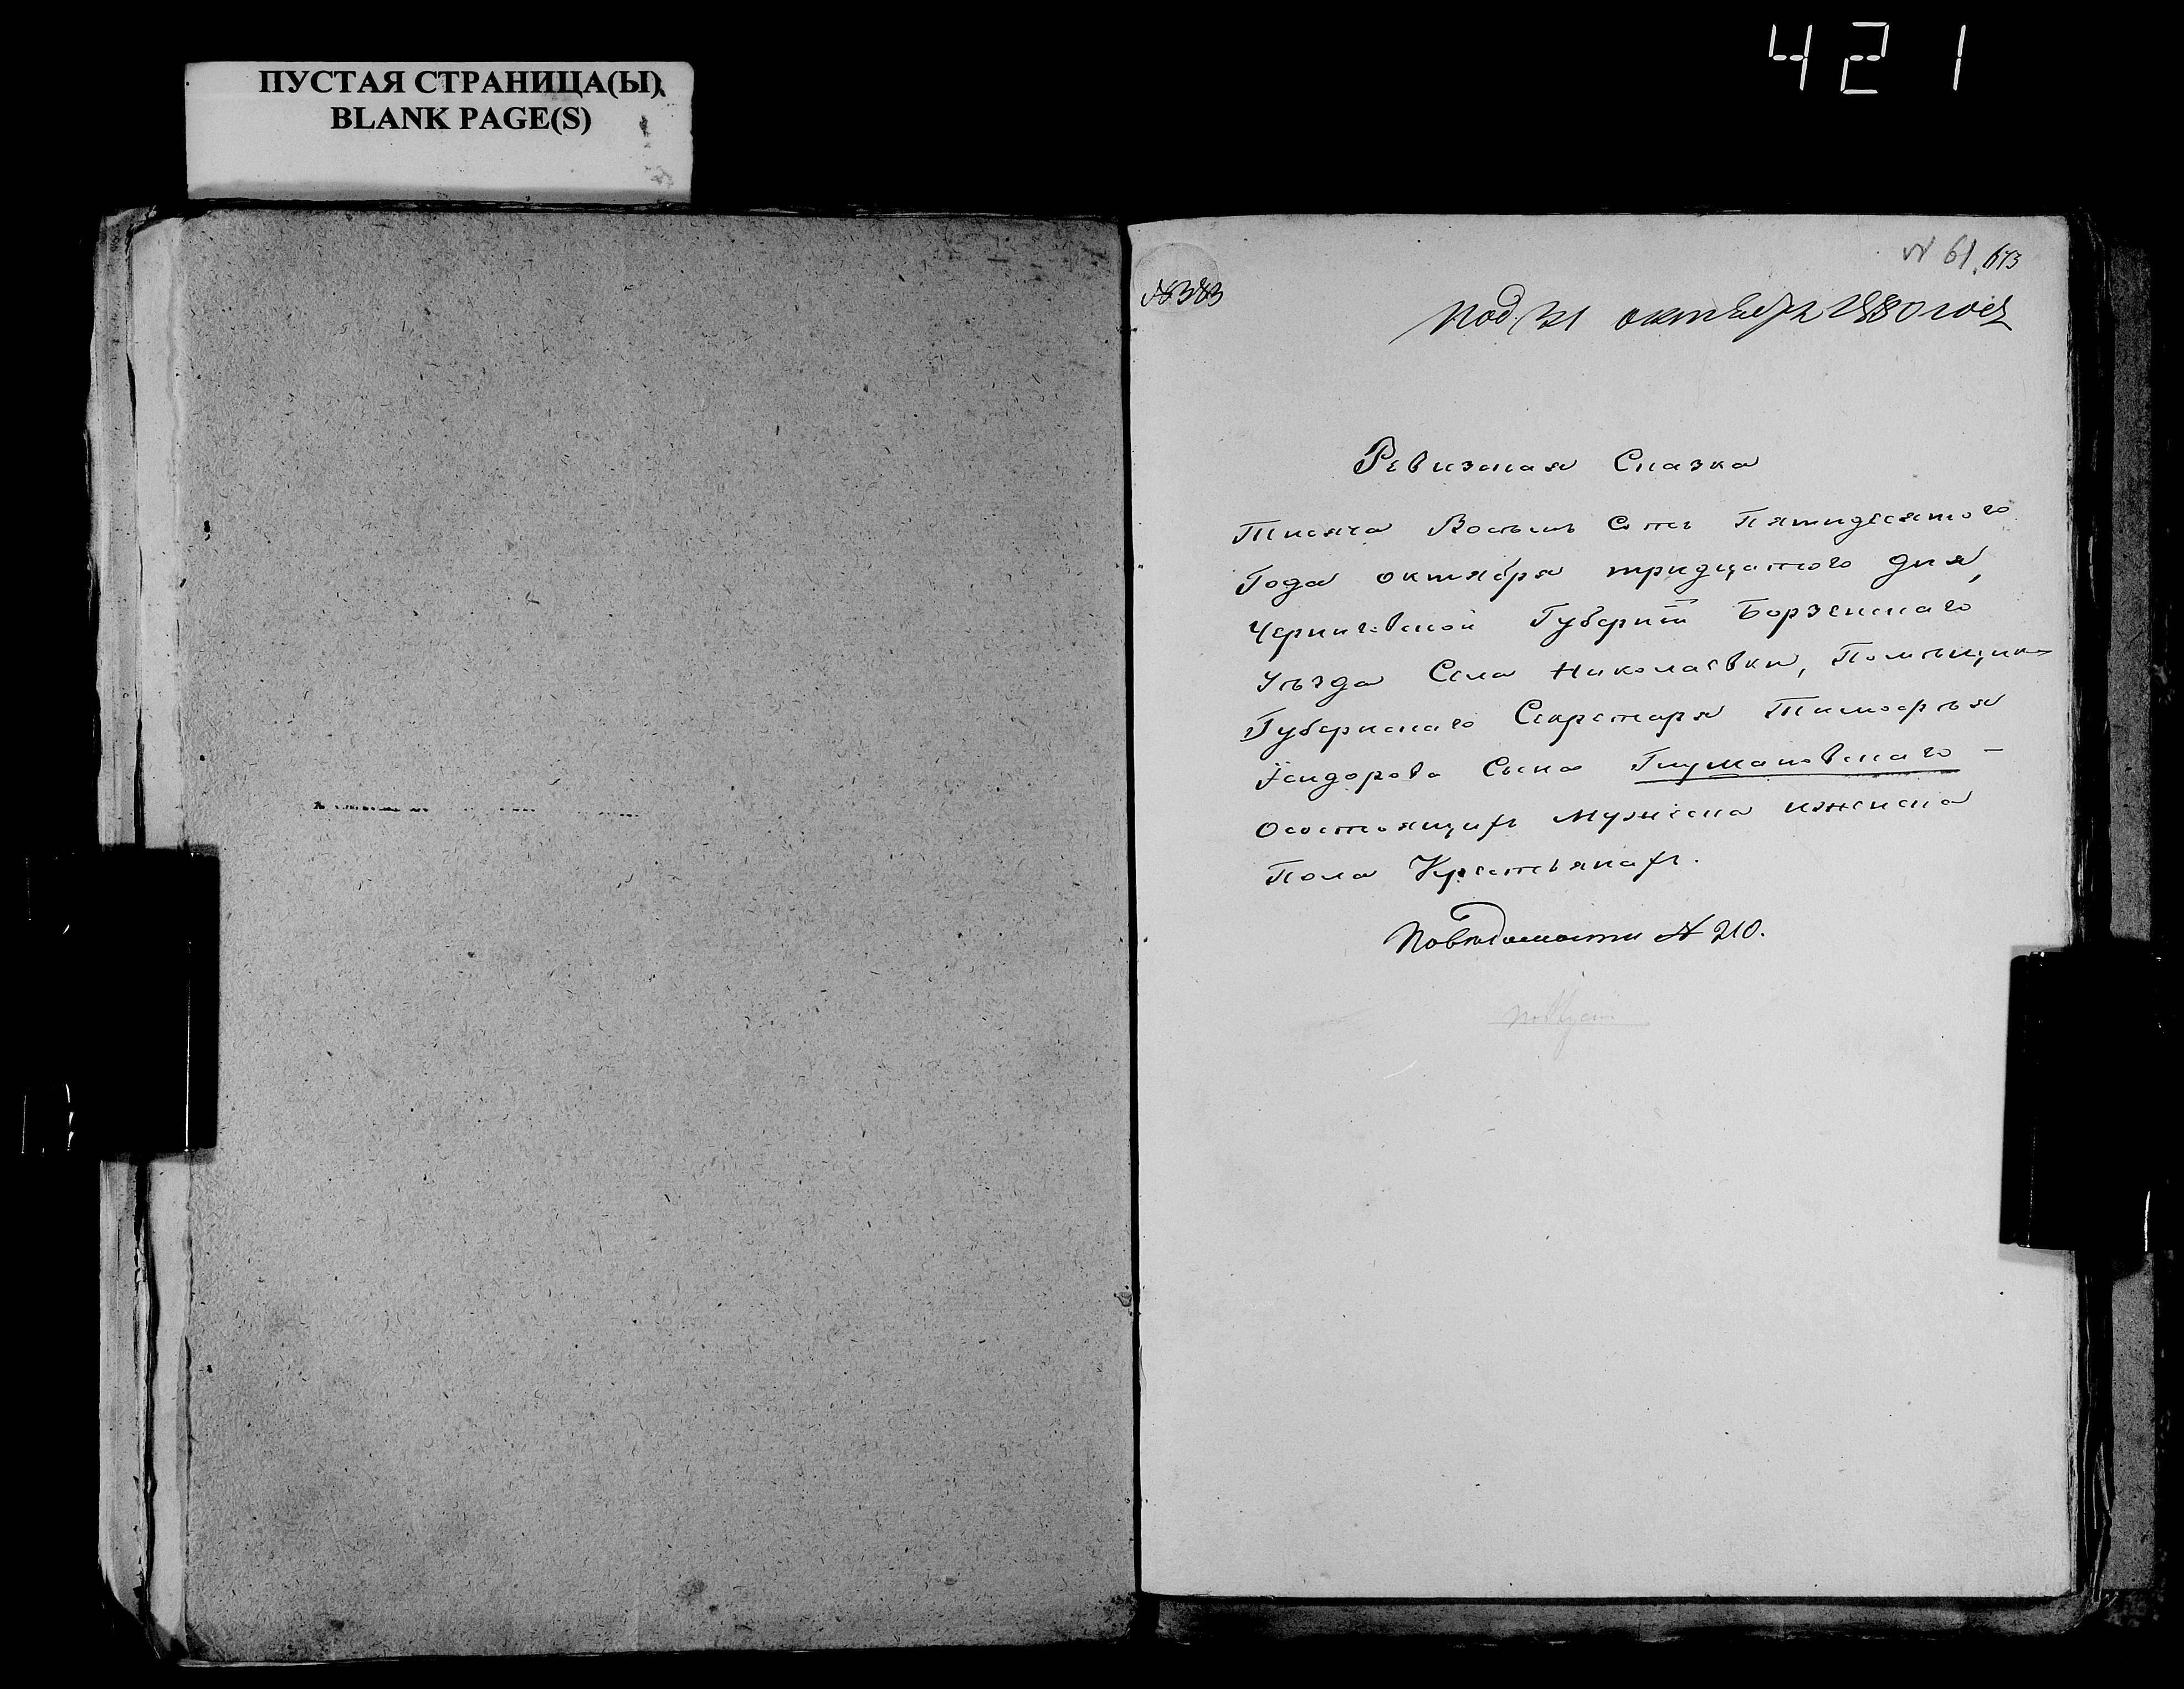 421
ПУСТАЯ СТРАНИЦА(Ы)
BLANK PAGE(S)
№ 61. 673
№ 383
Под. 31 октября 1850 года
Ревизская Сказка
Тисяча Восемь Сотъ Пятидесятого
Года октября тридцатого дня,
Черниговской Губерніи Борзенскаго
Уѣзда Села Николаевки, Помѣщика
Губернскаго Секретаря Тимофѣя
Сына Глумановскаго –
Осостоящихъ Мужеска иженска
Пола Крестьянахъ.
Повѣдомости № 210.